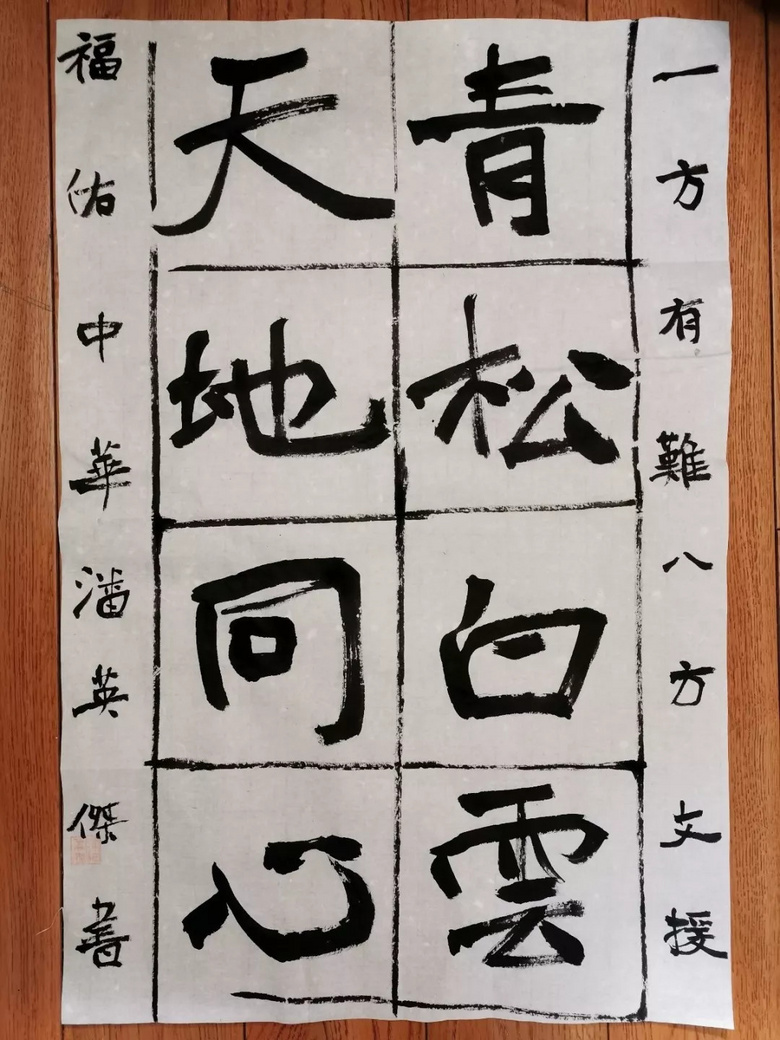 一方有難八方支援
青松白雲
天地同心
福佑中華潘英傑書